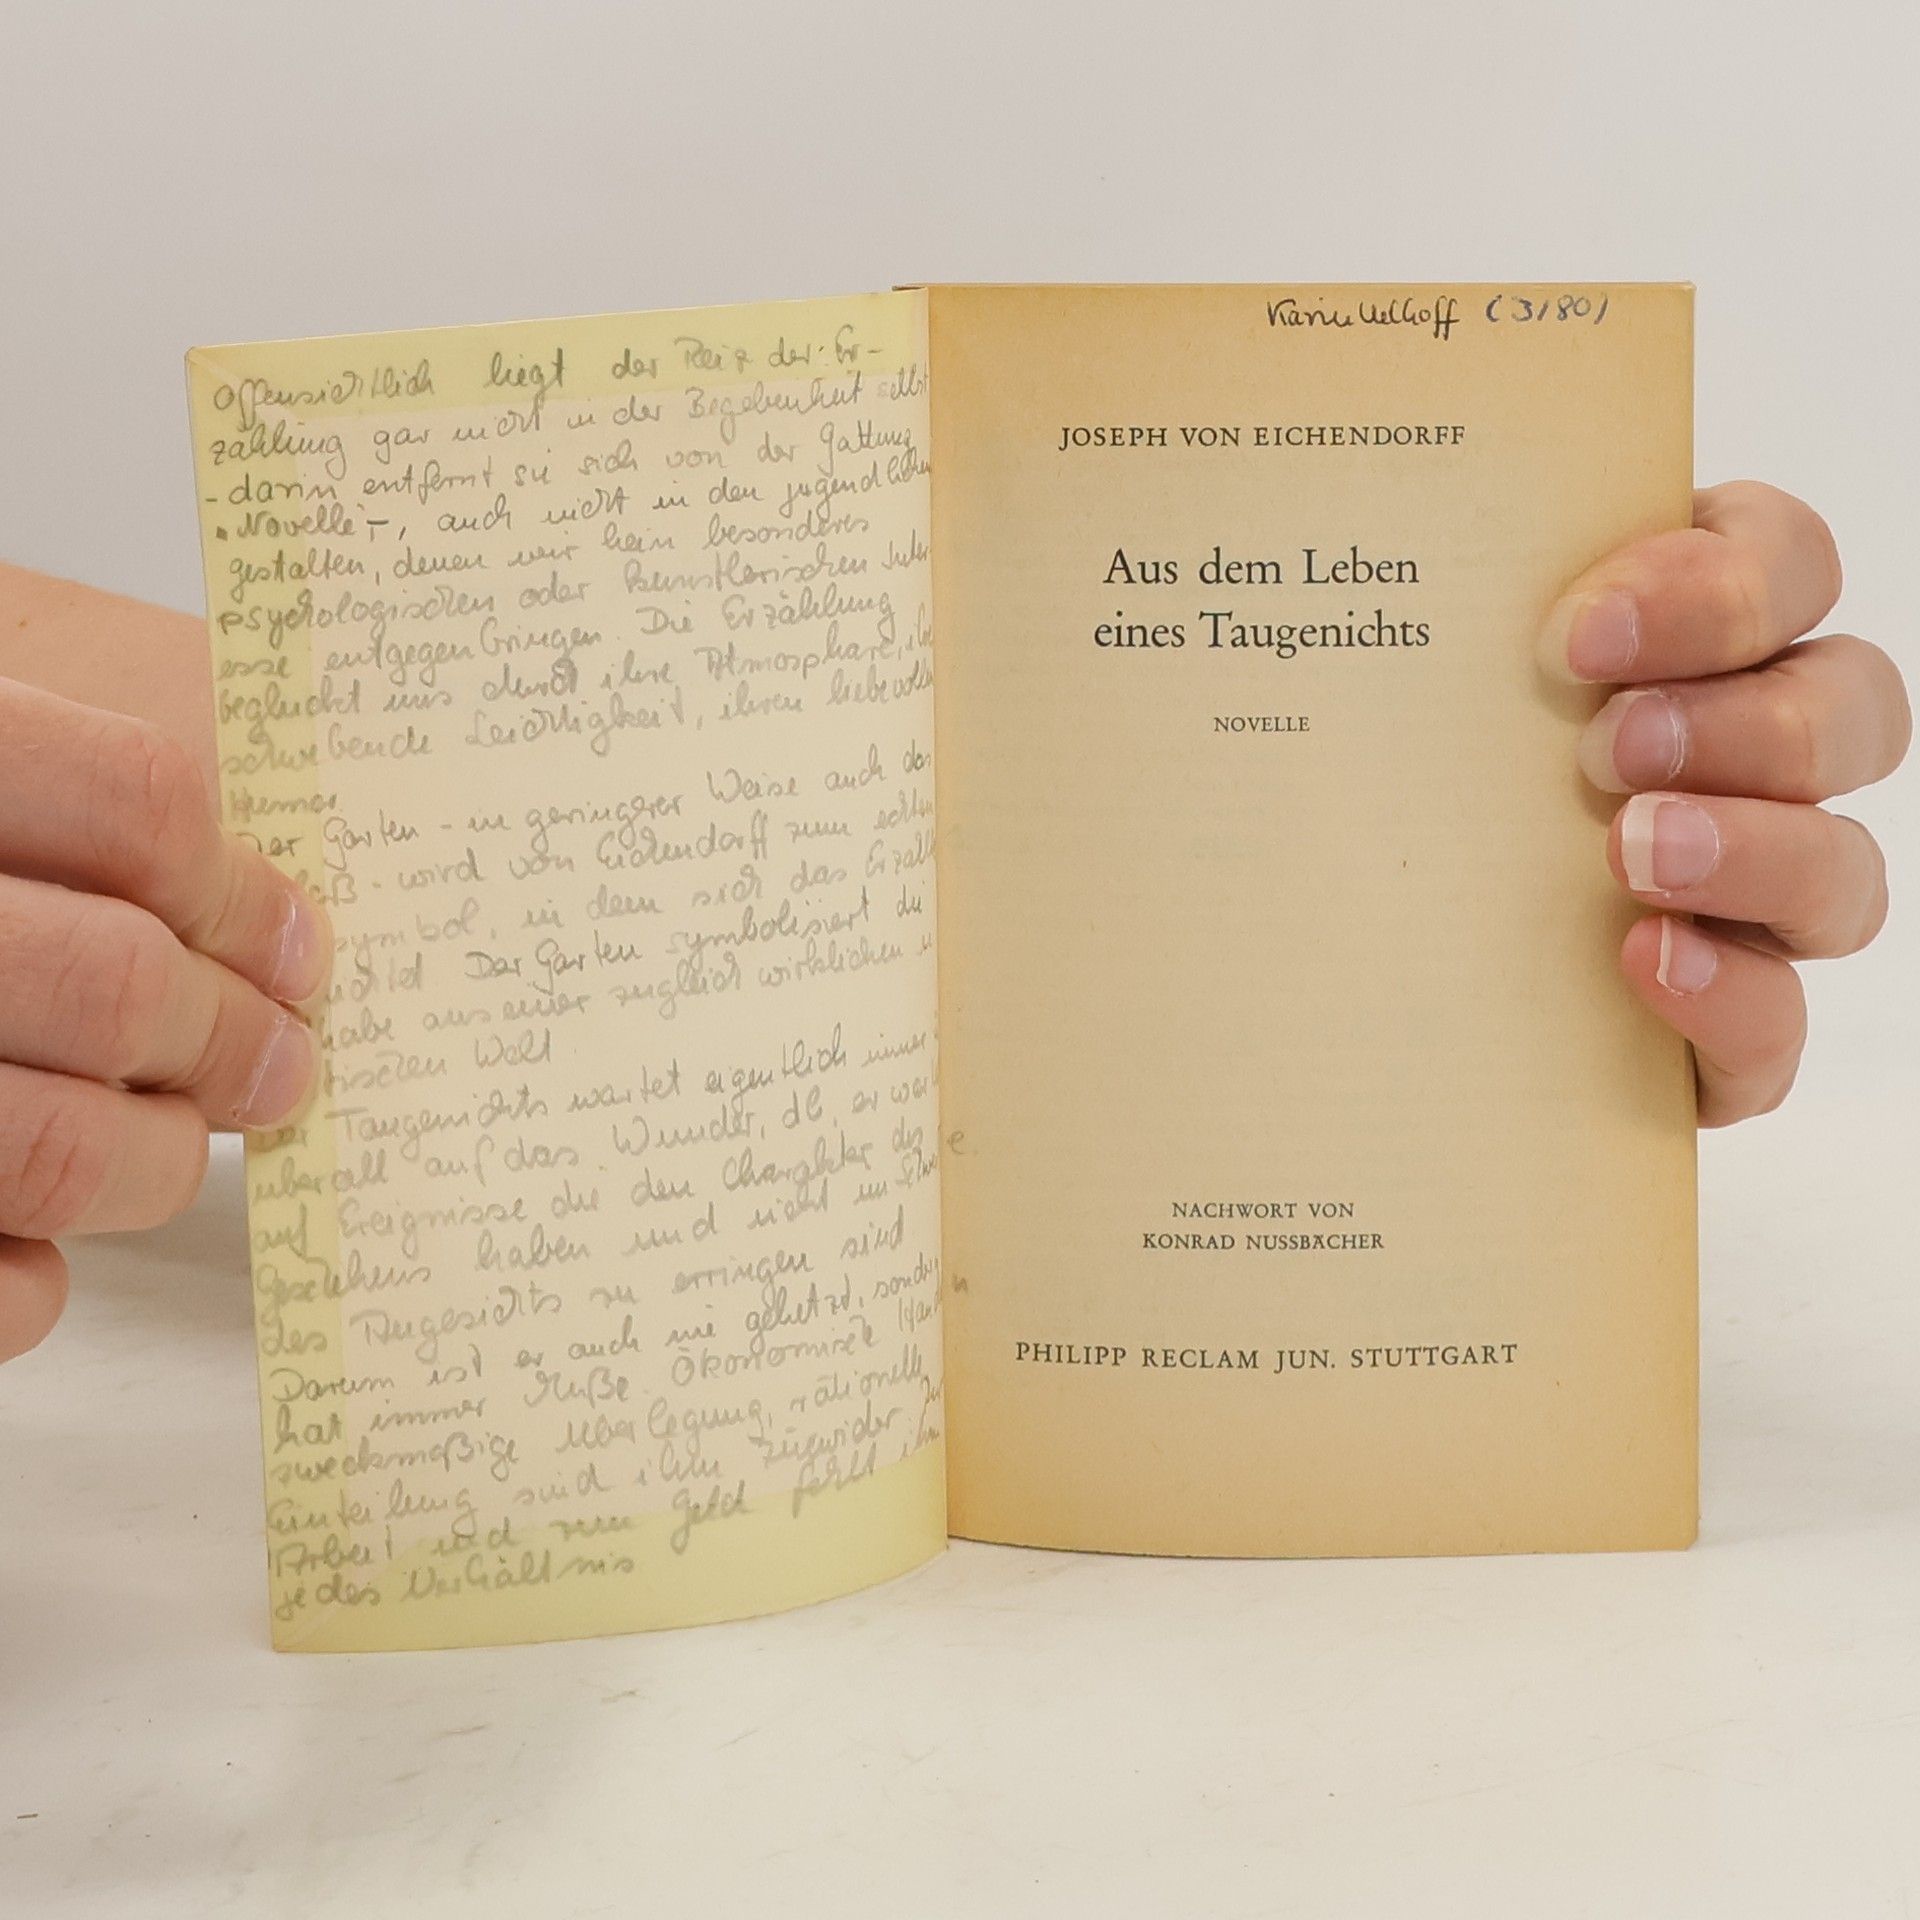 Offensichtlich liegt der Reiz der Er-
zählung gar nicht in der Begebenheit selbst
- darin entfernt sie sich von der Gattung
"Novelle" -, auch nicht in den jugendlichen
gestalten, denen wir kein besonderes
psychologischen oder künstlerischen Inter-
esse entgegenbringen. Die Erzählung
beglückt uns durch ihre Atmosphäre, ihre
schwebende Leichtigkeit, ihren liebevollen
Humor
Der Garten - in geringerer Weise auch das
- wird von Eichendorff zum echten
symbol, in dem sich das
Der Garten symbolisiert die
habe an einer zugleich wirklichen
Welt
Der Taugenichts wartet eigentlich immer
überall auf das Wunder, dh, er
auf Ereignisse die den Charakter des
Geschehens haben und nicht im
des Angesichts zu erringen sind
Darum ist er auch nie gehetzt, sondern
hat immer Muße. Ökonomische
zweckmäßige Überlegung, rationelle
Einteilung sind ihm zuwider Zur
Arbeit und zum Geld fehlt ihm
jedes Verhältnis
(3/80)
JOSEPH VON EICHENDORFF
Aus dem Leben
eines Taugenichts
NOVELLE
NACHWORT VON
KONRAD NUSSBÄCHER
PHILIPP RECLAM JUN. STUTTGART